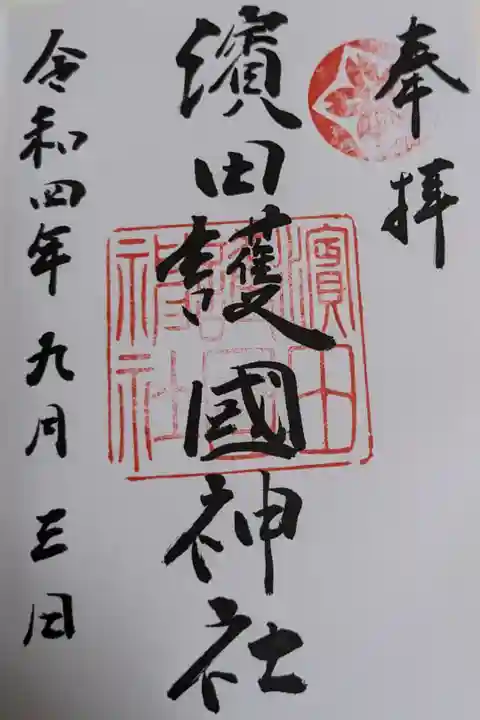 奉拝
濱田護國神社
濱田護國神社
令和四年九月三日